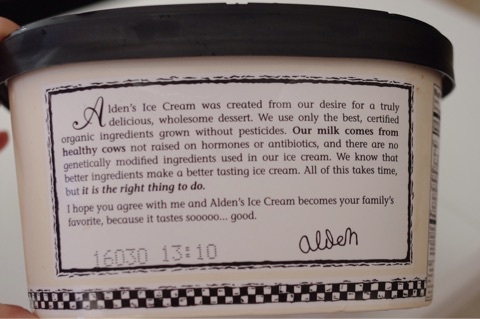 Alden's Ice Cream was created from our desire for a truly
delicious, wholesome dessert. We use only the best, certified
organic ingredients grown without pesticides. Our milk comes from
healthy cows not raised on hormones or antibiotics, and there are no
genetically modified ingredients used in our ice cream. We know that
better ingredients make a better tasting ice cream. All of this takes time,
but it is the right thing to do.
I hope you agree with me and Alden's Ice Cream becomes your family's
favorite, because it tastes sooooo... good.
alden
16030 13:10